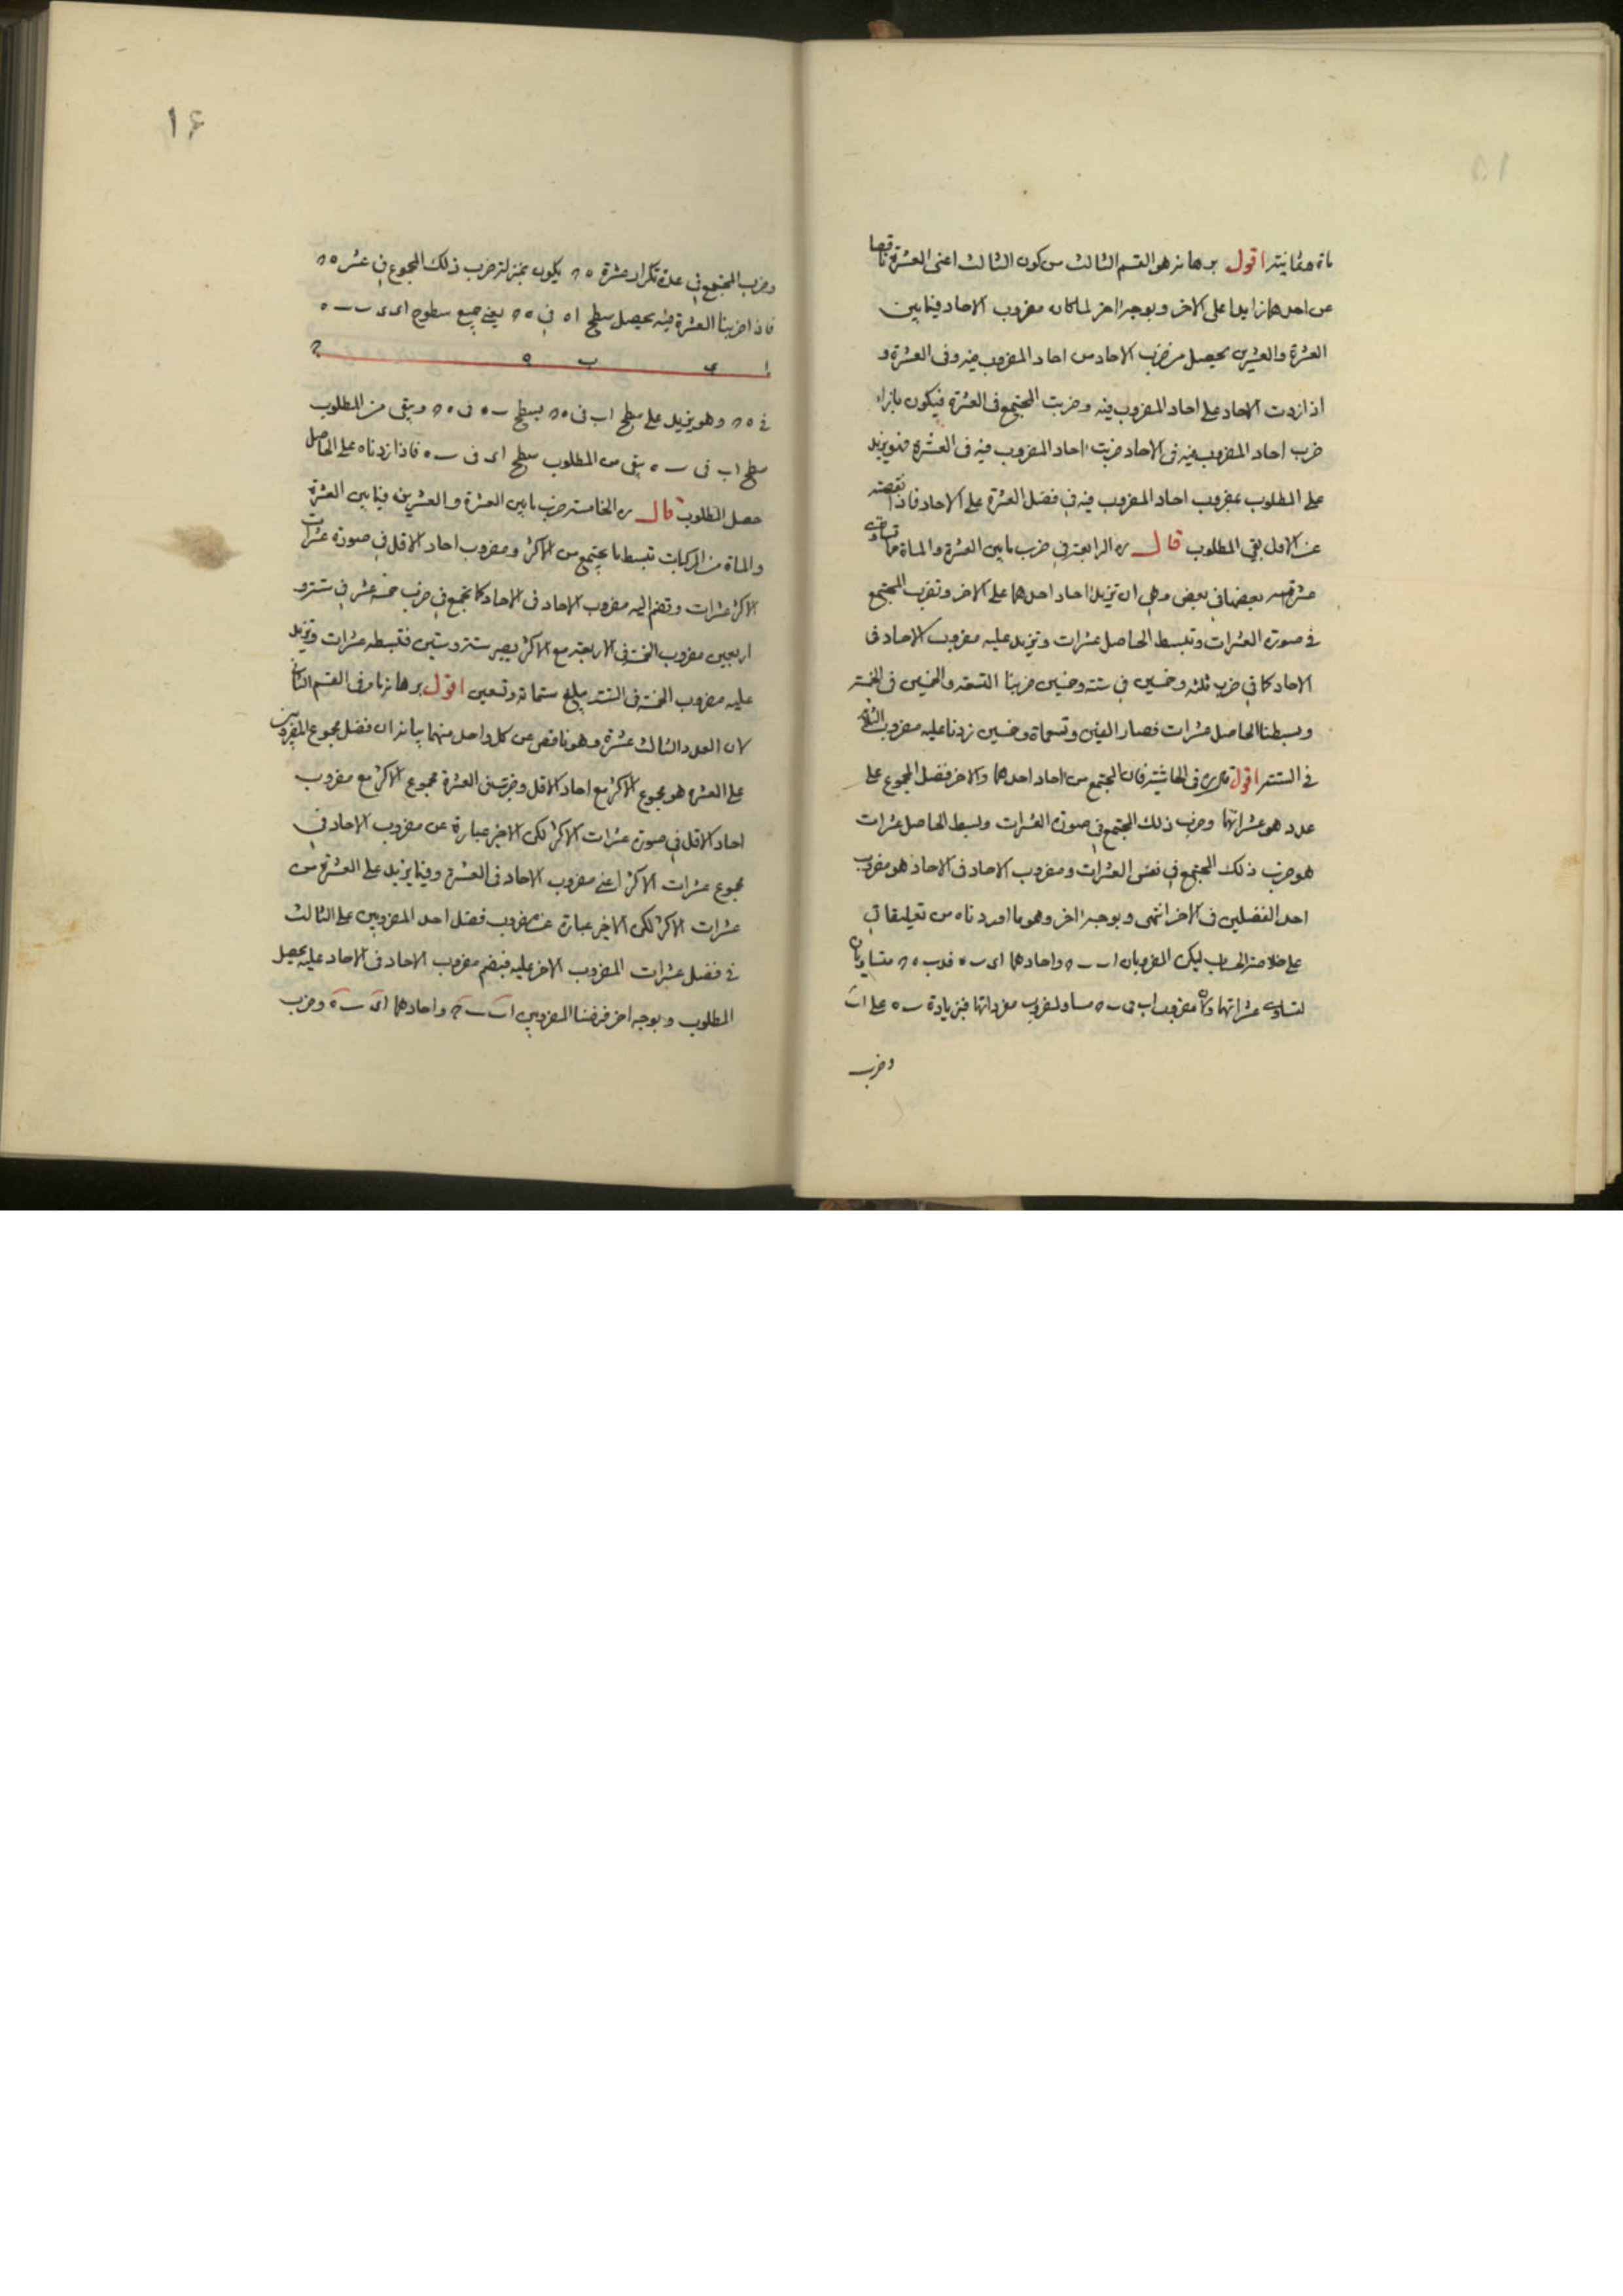 مأة وثمانية اقول برهانه هو القسم الثالث من كون الثالث اعنى العشرة ناقصا
عن احدهما زايدا على الاخر وبوجه اخر لما كان مضروب الاحاد فيما بين
العشرة والعشرين يحصل من ضرب الاحاد من احاد المضروب فيه وفى العشرة و
اذا زدت الاحاد على احاد المضروب فيه وضربت المجتمع فى العشرة فيكون بازاء
ضرب احاد المضروب فيه فى الاحاد ضربت احاد المضروب فيه فى العشرة فهو يزيد
على المطلوب بمضروب احاد المضروب فيه فى فضل العشرة على الاحاد فاذا نقصته
عن الاول بقى المطلوب قال ره الرابعة فى ضرب ما بين العشرة والمأة مما تساوت
عشراته بعضها فى بعض وهى ان تزيد احاد احدهما على الاخر وتضرب المجتمع
فى صورة العشرات وتبسط الحاصل عشرات وتزيد عليه مضروب الاحاد فى
الاحاد كما فى ضرب ثلثه وخمسين فى ستة وخمسين ضربنا التسعة والخمسين فى الخمسة
وبسطنا الحاصل عشرات فصار الفين وتسعمأة وخمسين زدنا عليه مضروب الثلثة
فى الستة اقول قال ره فى الحاشية فان المجتمع من احاد احدهما والاخر فضل المجموع على
عدد هو عشراتها وضرب ذلك المجتمع فى صورة العشرات وبسط الحاصل عشرات
هو ضرب ذلك المجتمع فى نفس العشرات ومضروب الاحاد فى الاحاد هو مضروب
احد الفضلين فى الاخر انتهى وبوجه اخر وهو ما اوردناه من تعليقاتى
على خلاصة الحساب ليكن المضروبان اب ب ح واحادهما اى ب ه فى ب ه ح متساويان
لتساوى عشراتهما ولان مضروب اب فى ب ح مساو لمضروب مفرداتها فبزيادة ب ه على اب
وضرب
١٦
وضرب المجتمع فى عدة تكرار عشرة ه ح يكون بمنزلة ضرب ذلك المجموع فى عشر ه ح
فاذا ضربنا العشرة فيه يحصل سطح اه فى ه ح يعنى جميع سطوح اى ى ب ب ه
ا ى ب ه ح
فى ه ح وهو يزيد على سطح اب فى ه ح بسطح ب ه فى ه ح ويبقى من المطلوب
سطح اب فى ب ه بقى من المطلوب سطح اى فى ب ه فاذا زدناه على الحاصل
حصل المطلوب قال ره الخامسة ضرب ما بين العشرة والعشرين فيما بين العشرة
والمأة من المركبات تبسط ما يجتمع من الاكثر ومضروب احاد الاقل فى صورة عشرات
الاكثر عشرات وتضم اليه مضروب الاحاد فى الاحاد كما تجمع فى ضرب خمسة عشر فى ستة و
اربعين مضروب الخمسة فى الاربعة مع الاكثر يصير ستة وستين فتبسطه عشرات وتزيد
عليه مضروب الخمسة فى الستة يبلغ ستمأة وتسعين اقول برهانه ما مر فى القسم الثانى
لان العدد الثالث عشرة وهو ناقص عن كل واحد منهما بيانه ان فضل مجموع المضروبين
على العشرة هو مجموع الاكثر مع احاد الاقل وضربت فى العشرة مجموع الاكثر مع مضروب
احاد الاقل فى صورة عشرات الاكثر لكن الاخير عبارة عن مضروب الاحاد فى
مجموع عشرات الاكثر اعنى مضروب الاحاد فى العشرة وفيما يزيد على العشرة من
عشرات الاكثر لكن الاخير عبارة عن مضروب فضل احد المضروبين على الثالث
فى فضل عشرات المضروب الاخر عليه فبضم مضروب الاحاد فى الاحاد عليه يحصل
المطلوب وبوجه اخر فرضنا المضروبين اب ب ح واحادهما اى ب ه وضرب